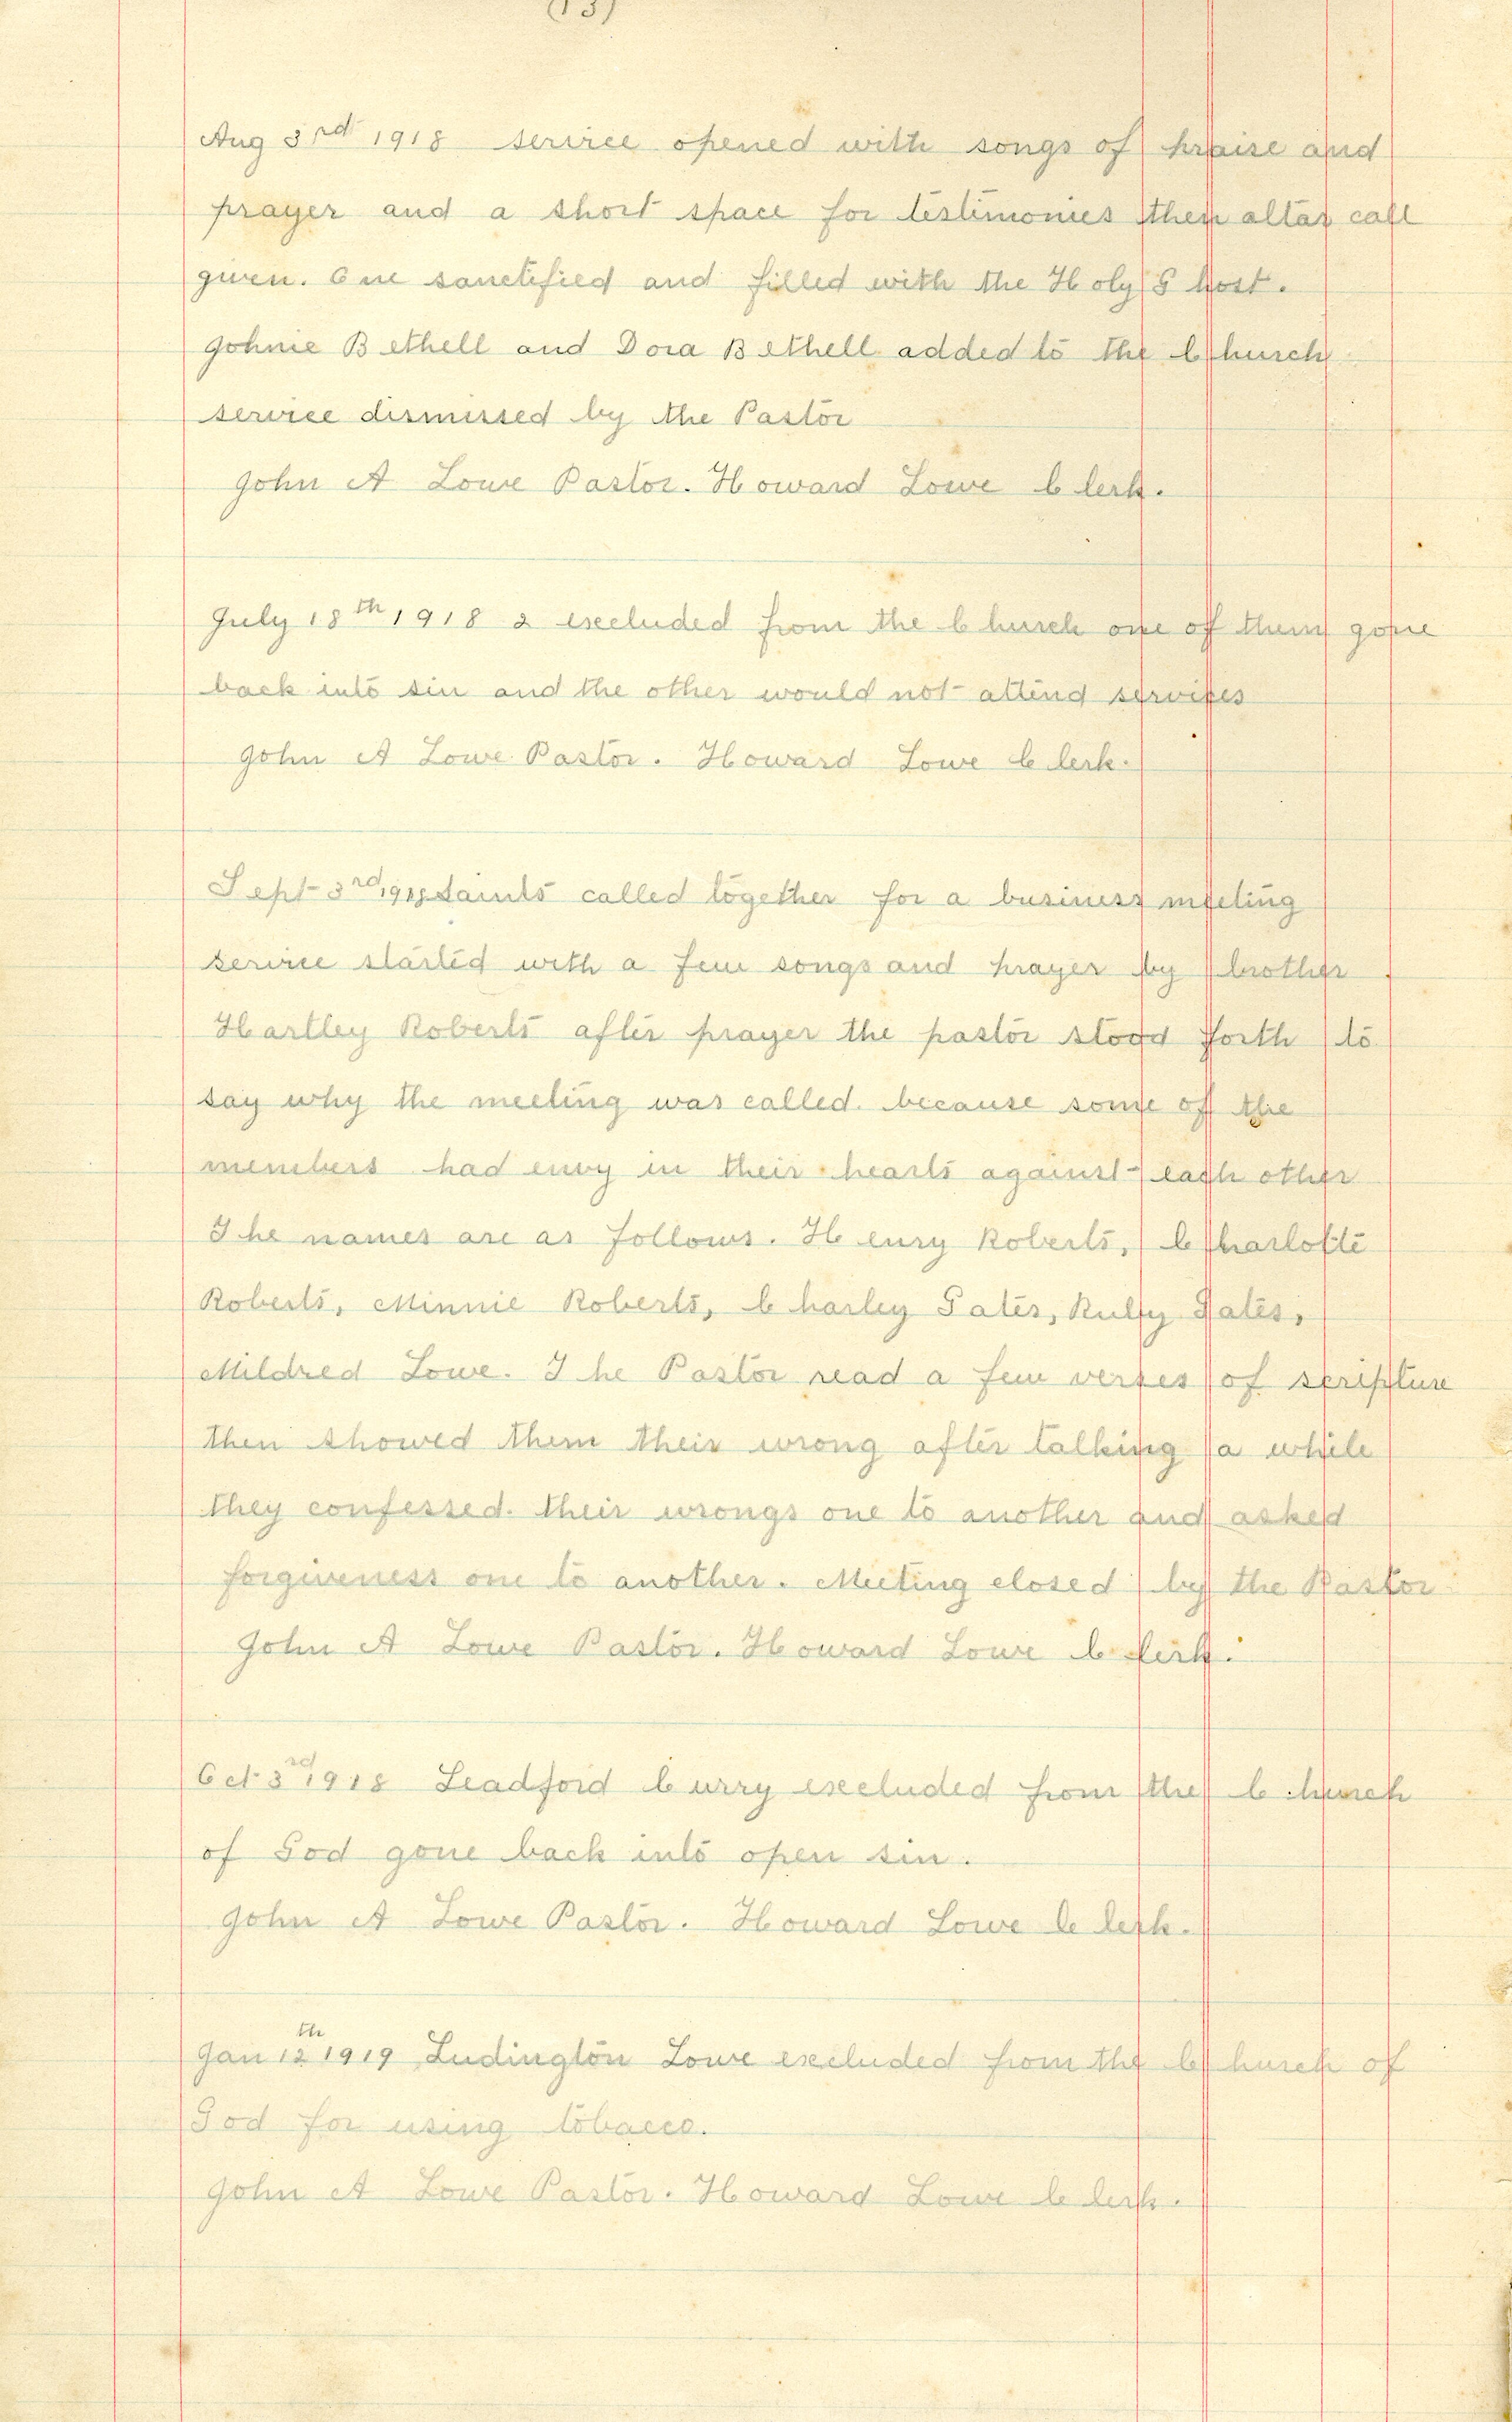 (13)
Aug 3rd 1918 service opened with songs of praise and
prayer and a short space for testimonies then altar call
given. One sanctified and filled with the Holy Ghost.
Johnie Bethell and Dora Bethell added to the Church
service dismissed by the Pastor
John A Lowe Pastor. Howard Lowe Clerk.
July 18th 1918 2 excluded from the Church one of them gone
back into sin and the other would not attend services
John A Lowe Pastor. Howard Lowe Clerk.
Sept 3rd 1918 Saints called together for a business meeting
service started with a few songs and prayer by brother
Hartley Roberts after prayer the pastor stood forth to
say why the meeting was called. because some of the
members had envy in their hearts against each other
The names are as follows. Henry Roberts, Charlotte
Roberts, Minnie Roberts, Charley Gates, Gates,
Mildred Lowe. The Pastor read a few verses of scripture
then showed them their wrong after talking a while
they confessed. their wrongs one to another and asked
forgiveness one to another. Meeting closed by the Pastor
John A Lowe Pastor. Howard Lowe Clerk.
Oct 3rd 1918 Leadford Curry excluded from the Church
of God gone back into open sin.
John A Lowe Pastor. Howard Lowe Clerk.
Jan 12th 1919 Ludington Lowe excluded from the Church of
God for using tobacco.
John A Lowe Pastor. Howard Lowe Clerk.